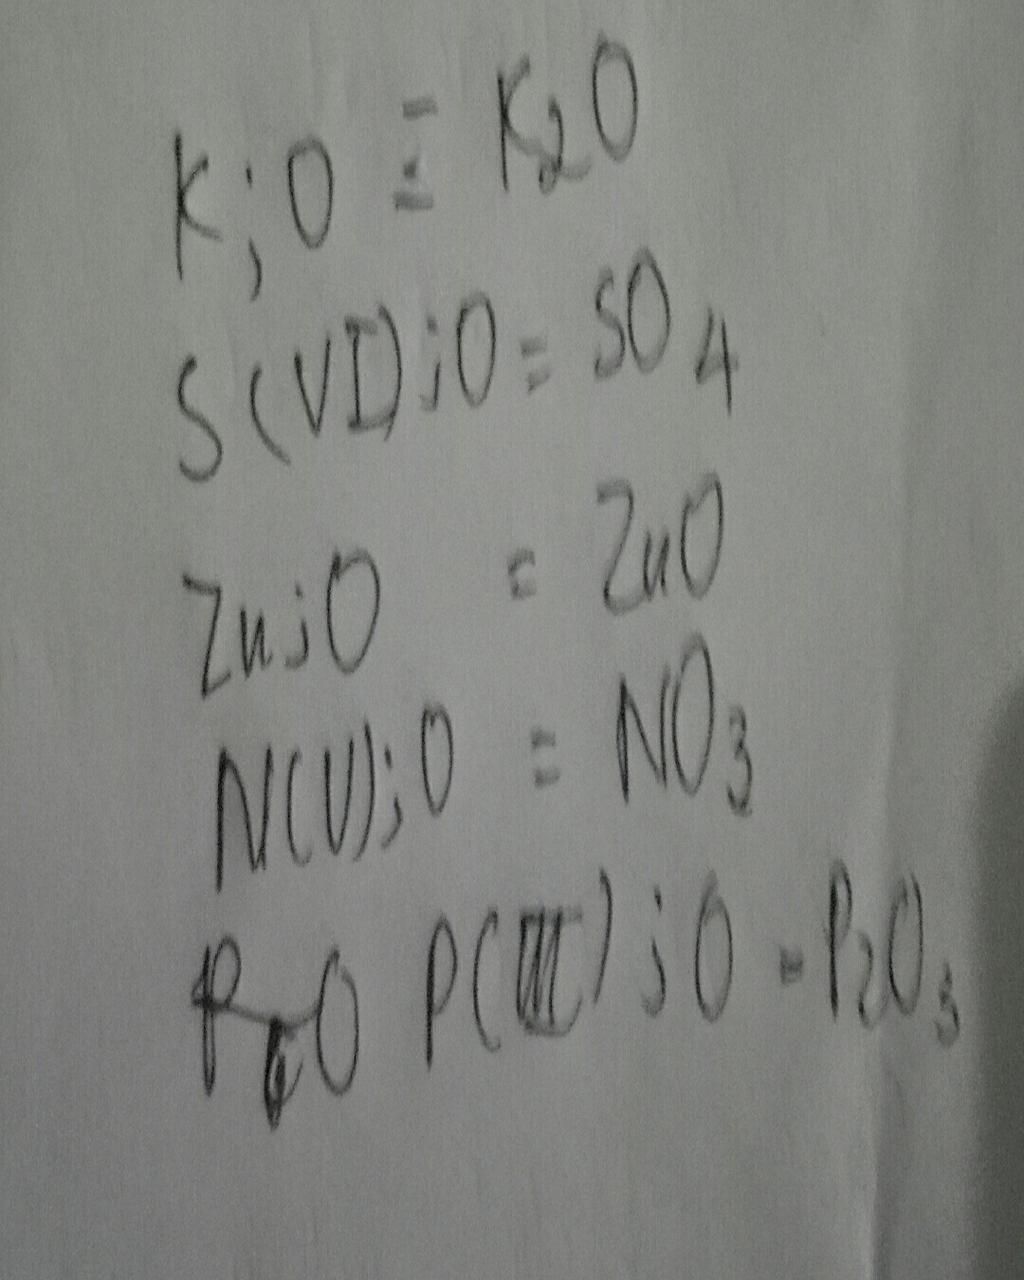 K; O = K₂O
S (VI) ; O = SO₄
Zn ; O = ZnO
N(V) ; O = NO₃
P(III) ; O = P₂O₃